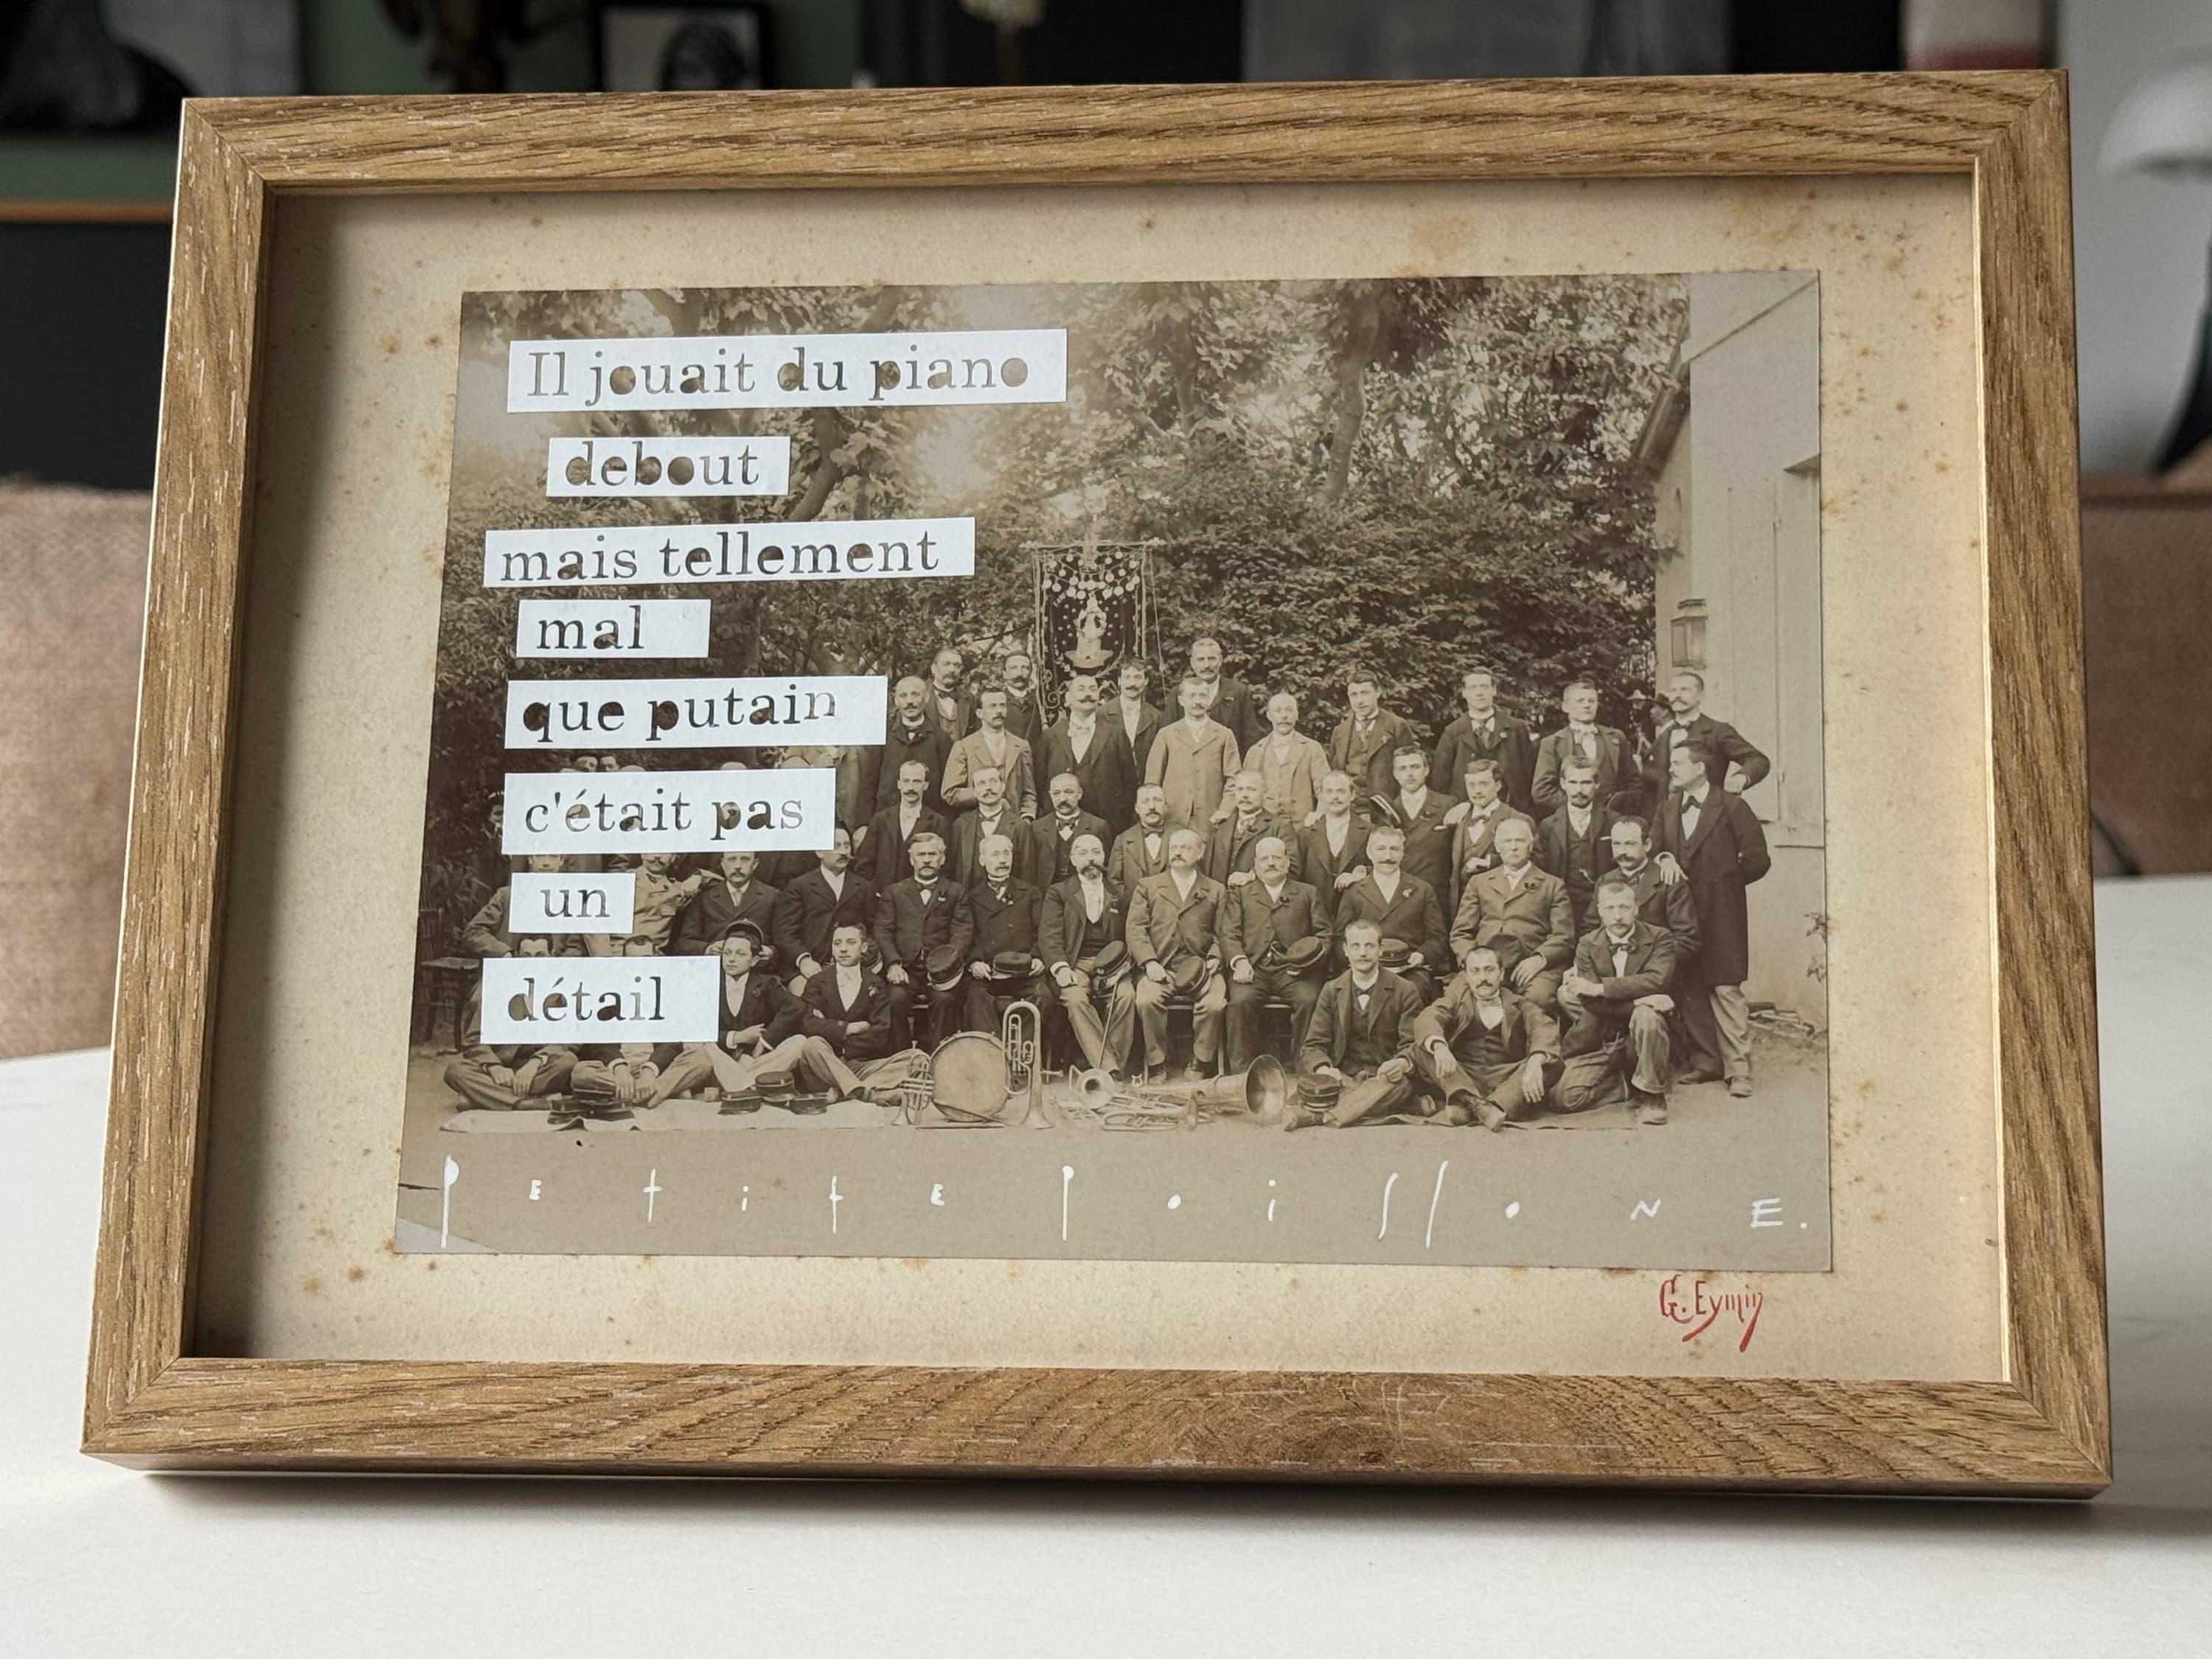 Il jouait du piano
debout
mais tellement
mal
que putain
c'était pas
un
détail
PETITE POISSONE.
G. Eymin